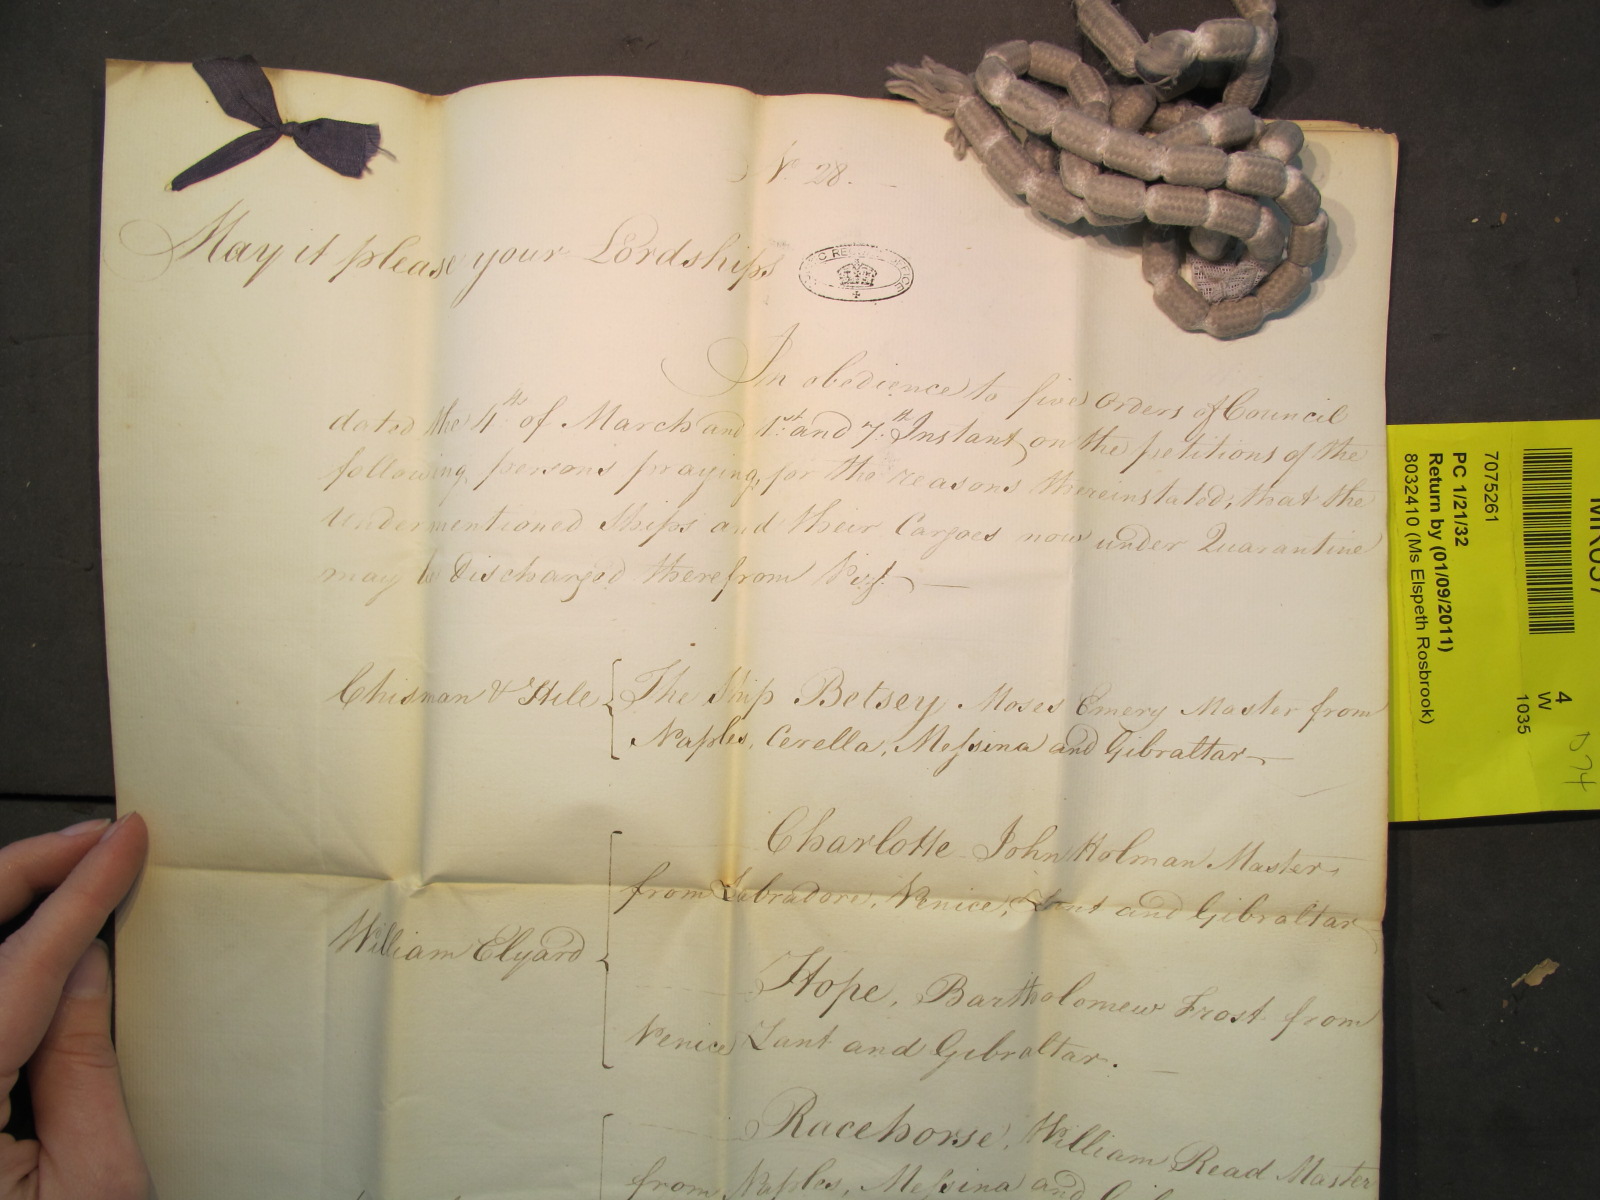 No 28.
May it please your Lordships
PUBLIC RECORD OFFICE
In obedience to five Orders of Council
dated the 4th of March and 1st and 7th Instant on the petitions of the
following persons praying, for the reasons therein stated, that the
undermentioned Ships and their Cargoes now under Quarantine
may be Discharged therefrom Vizt.
Chisman & Hele
The Ship Betsey Moses Emery Master from
Naples, Cerella, Messina and Gibraltar
William Elyard
Charlotte John Holman Master
from Labradore, Venice, Zant and Gibraltar
Hope, Bartholomew Frost from
Venice Zant and Gibraltar.
Racehorse, William Read Master
from Naples, Messina and
7075261
PC 1/21/32
Return by (01/09/2011)
8032410 (Ms Elspeth Rosbrook)
4
W
1035